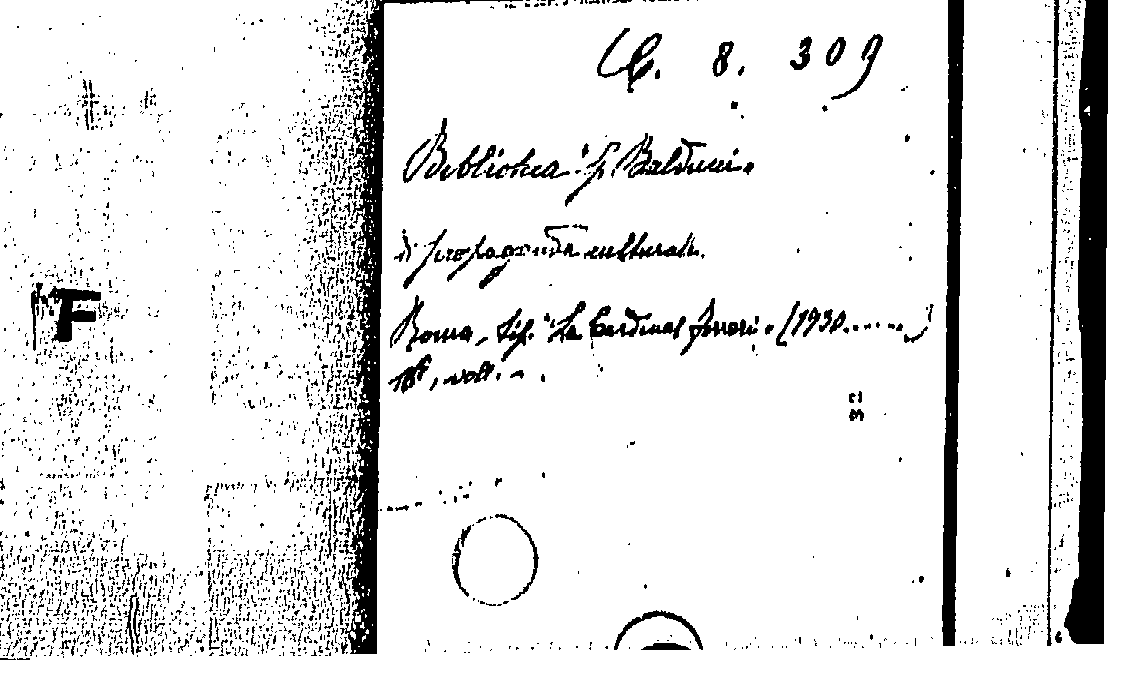 C. 8. 309
Biblioteca "G. Balducci"
di propaganda culturale.
Roma, Tip. "La Cardinal Ferrari" (1930.......)
16°, voll.
F